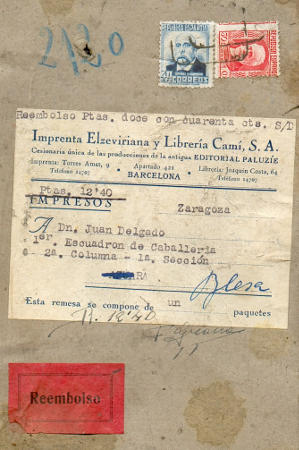 2120
REPUBLICA ESPAÑOLA
CORREOS
Reembolso Ptas. doce con cuarenta cts. S/D
Imprenta Elzeviriana y Librería Camí, S. A.
Cesionaria única de las producciones de la antigua EDITORIAL PALUZÍE
Imprenta: Torres Amat, 9 Apartado 421 Librería: Joaquín Costa, 64
Teléfono 14767 BARCELONA Teléfono 14767
Ptas. 12'40
IMPRESOS Zaragoza
A Dn. Juan Delgado
1er. Escuadron de Caballeria
6- 2a. Columna - 1a. Sección
Blesa
Esta remesa se compone de un paquetes
R. 12'40
Reembolso